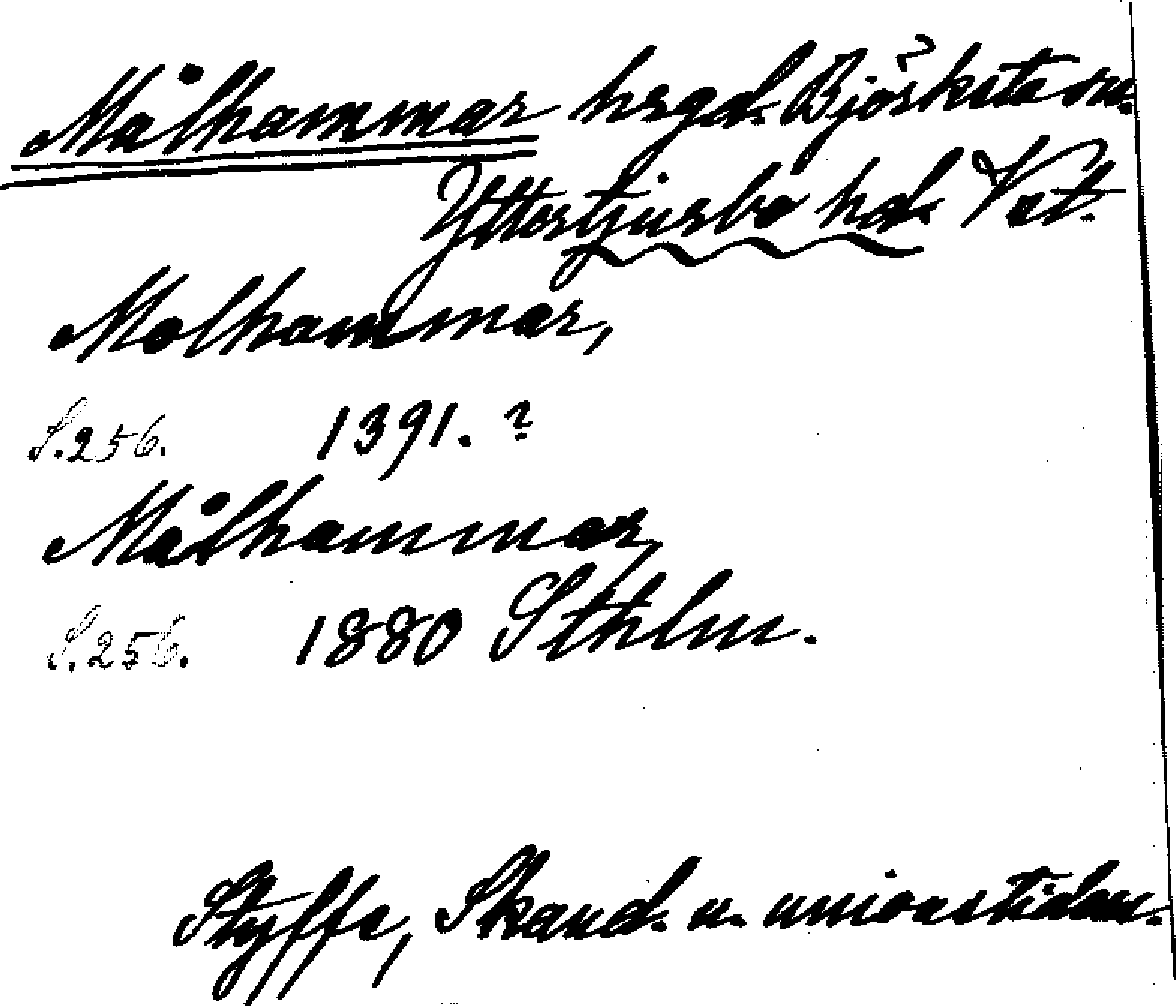 Målhammar hrgd. Björksta sn.
Yttertjurbo hd. Vst.
Molhammar,
S. 256. 1391. ?
Målhammar,
S. 256. 1880 Sthlm.
Styffe, Skand. u. unionstiden.